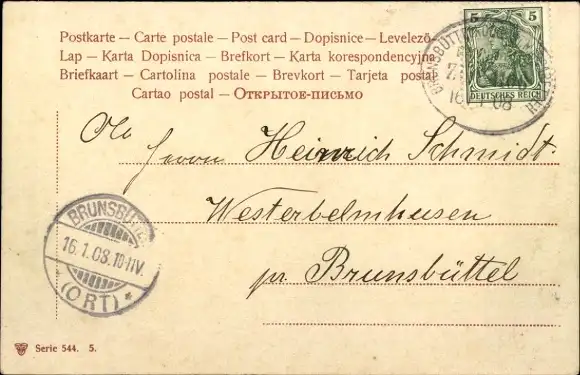 Postkarte — Carte postale — Post card — Dopisnice — Levelező-
Lap — Karta Dopisnica — Brefkort — Karta korespondencyjna
Briefkaart — Cartolina postale — Brevkort — Tarjeta postal
Cartao postal — Открытое-письмо
5 5
DEUTSCHES REICH
Herrn Heinrich Schmidt.
Westerbelmhusen
pr Brunsbüttel
BRUNSBÜTTEL
16.1.08.10-11V.
(ORT) *
Serie 544. 5.